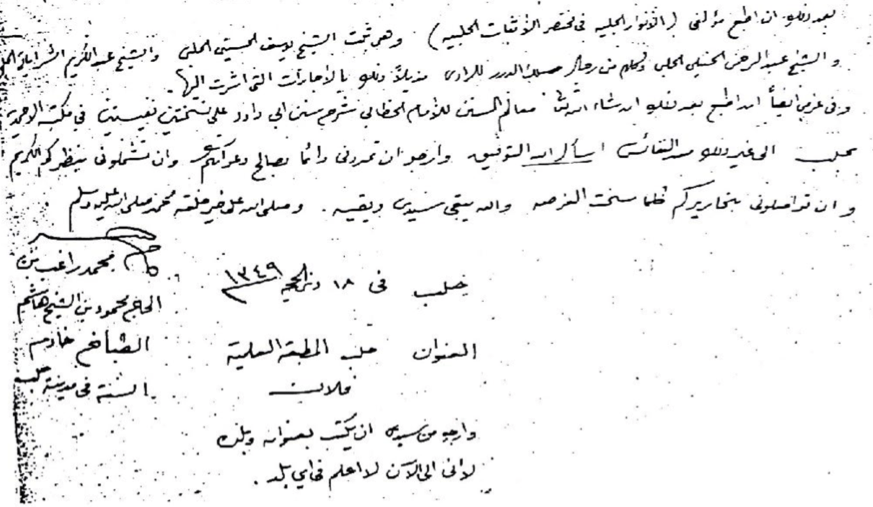 بعد ذلك ان اطبع مؤلفي (الانوار الجلية في مختصر الاثبات الحلبية) وهي ثبت الشيخ يوسف الحسيني الحلبي والشيخ عبد الكريم الشراباتي الحلبي
والشيخ عبد الرحمن الحنبلي الحلبي وكلهم من رجال الدرر للمرادي مذيلاً ذلك بالاجازات التي اشرت اليها.
وفي عزمي ايضاً ان اطبع بعد ذلك ان شاء الله معالم السنن للامام الخطابي شرح سنن ابي داود على نسختين نفيستين في مكتبة الاحمدية
بحلب الى غير ذلك من النفائس اسأل الله التوفيق وارجو ان تمدوني دائما بصالح دعواتكم وان تشملوني بنظركم الكريم
وان تواصلوني بتحاريركم كلما سنحت الفرصة والله يبقي سيدي ويقيه. وصلى الله على خير خلقه محمد صلى الله عليه وسلم
محمد راغب بن
الحاج محمود بن الشيخ هاشم
الطباخ خادم
السنة في مدينة حلب
حلب في ١٨ ذي الحجة ١٣٤٩
العنوان حلب المطبعة العلمية
وارجو من سيدي ان يكتب بعنوانه وبلده
لاني الى الآن لا اعلم في اي بلد.